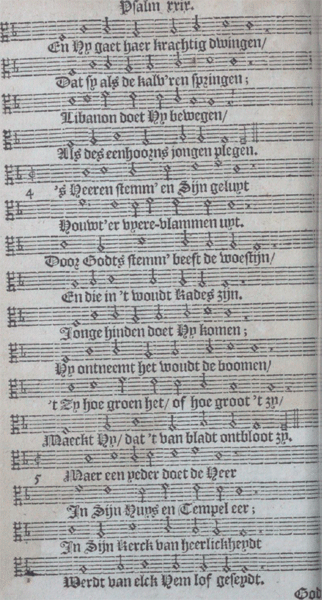 Psalm xxix.
En Hy gaet haer krachtig dwingen/
Dat sy als de kalv'ren springen;
Libanon doet Hy bewegen/
Als des eenhoorns jongen plegen.
4 's Heeren stemm' en Sijn geluyt
Houwt'er vyere-vlammen uyt.
Door Godts stemm' beeft de woestijn/
En die in 't woudt Kades zijn.
Jonge hinden doet Hy komen;
Hy ontneemt het woudt de boomen/
't Zy hoe groen het/ of hoe groot 't zy/
Maeckt Hy/ dat 't van bladt ontbloot zy.
5 Maer een yeder doet de Heer
In Sijn Huys en Tempel eer;
In Sijn Kerck van heerlickheydt
Werdt van elck Hem lof geseydt.
God